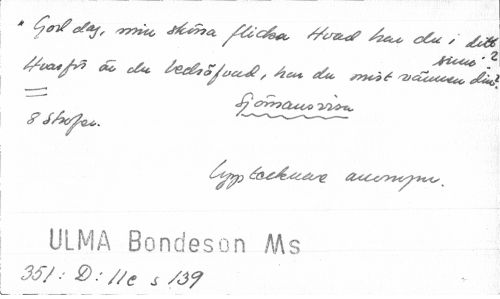 " God dag, min sköna flicka Hvad har du i ditt
sinn'?
Hvarför är du bedröfvad, har du mist vännen din?
=
8 strofer.
Sjömansvisa
Upptecknare anonym.
ULMA Bondeson Ms
351: D: 11e s 139